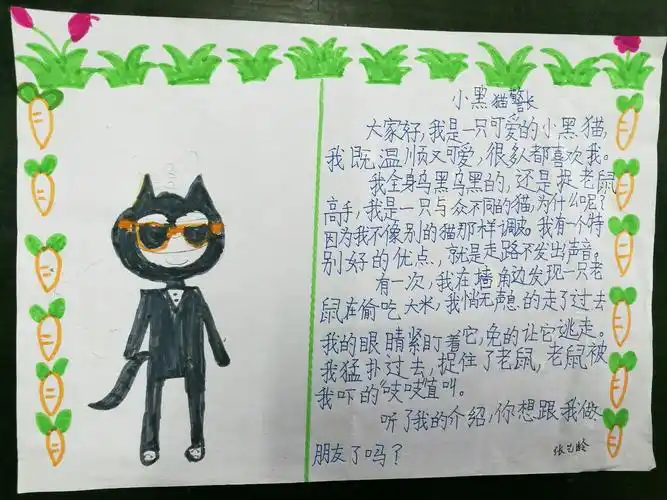 小黑猫警长
大家好,我是一只可爱的小黑猫,
我既温顺又可爱,很多人都喜欢我。
我全身乌黑乌黑的,还是捉老鼠
高手,我是一只与众不同的猫,为什么呢?
因为我不像别的猫那样调皮。我有一个特
别好的优点,就是走路不发出声音。
有一次,我在墙角边发现一只老
鼠在偷吃大米,我悄无声息的走了过去
我的眼睛紧盯着它,免的让它逃走。
我猛扑过去,捉住了老鼠,老鼠被
我吓的“吱吱”直叫。
听了我的介绍,你想跟我做
朋友了吗?